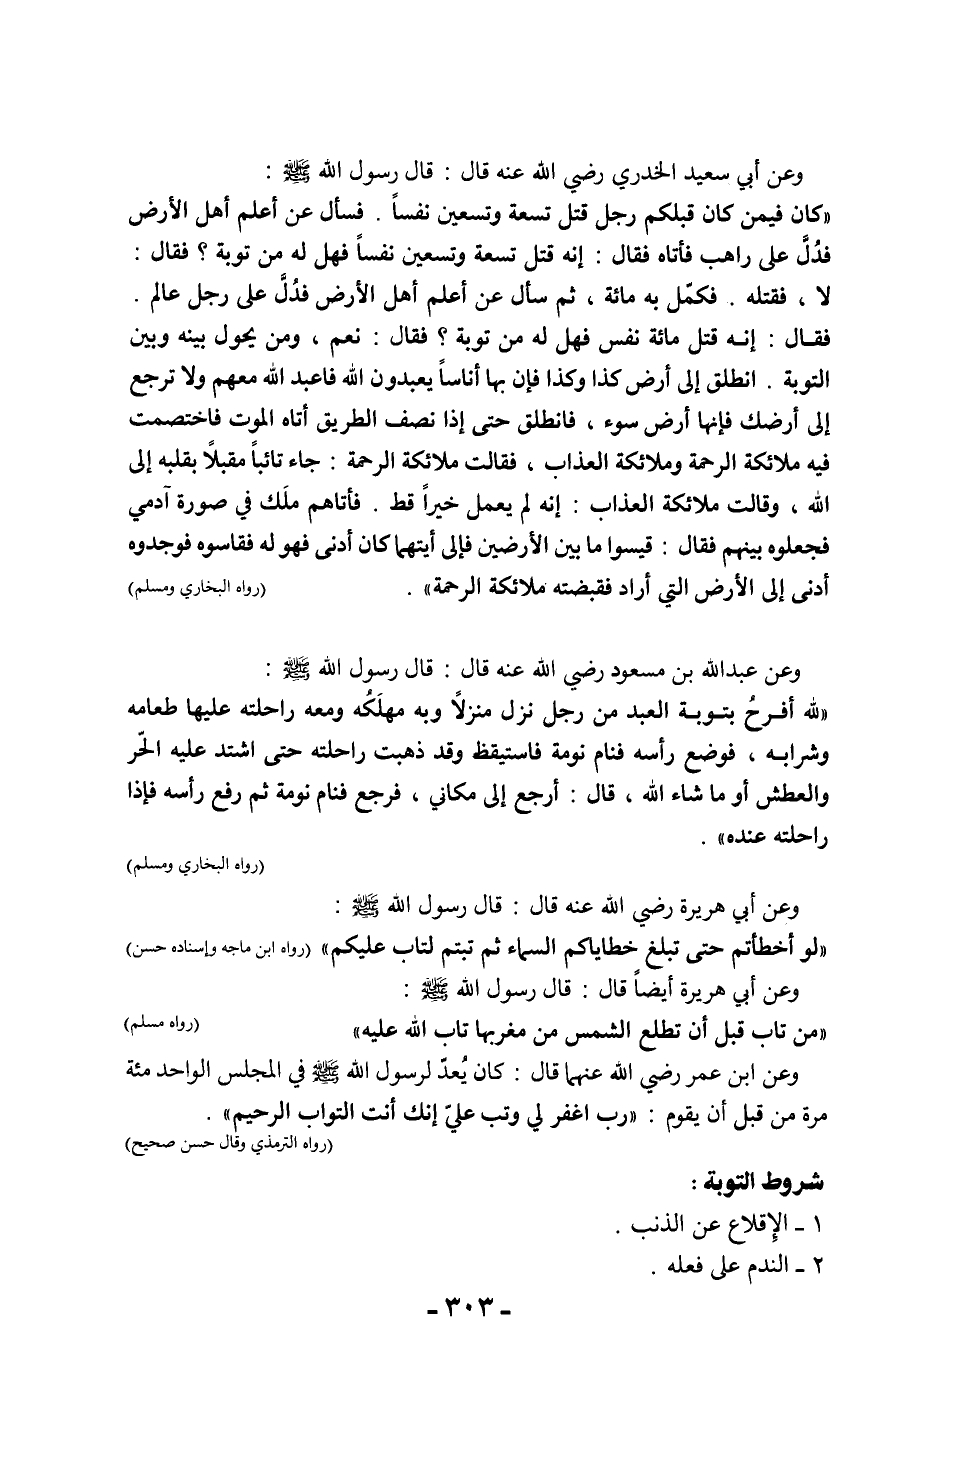 وعن أبي سعيد الخدري رضي الله عنه قال : قال رسول الله ﷺ :
«كان فيمن كان قبلكم رجل قتل تسعة وتسعين نفساً . فسأل عن أعلم أهل الأرض
فدُلَّ على راهب فأتاه فقال : إنه قتل تسعة وتسعين نفساً فهل له من توبة ؟ فقال :
لا ، فقتله . فكمّل به مائة ، ثم سأل عن أعلم أهل الأرض فدُلَّ على رجل عالم .
فقـال : إنـه قتل مائة نفس فهل له من توبة ؟ فقال : نعم ، ومن يحول بينه وبين
التوبة . انطلق إلى أرض كذا وكذا فإن بها أناساً يعبدون الله فاعبد الله معهم ولا ترجع
إلى أرضك فإنها أرض سوء ، فانطلق حتى إذا نصف الطريق أتاه الموت فاختصمت
فيه ملائكة الرحمة وملائكة العذاب ، فقالت ملائكة الرحمة : جاء تائباً مقبلاً بقلبه إلى
الله ، وقالت ملائكة العذاب : إنه لم يعمل خيراً قط . فأتاهم ملَك في صورة آدمي
فجعلوه بينهم فقال : قيسوا ما بين الأرضين فإلى أيتهما كان أدنى فهو له فقاسوه فوجدوه
أدنى إلى الأرض التي أراد فقبضته ملائكة الرحمة» . (رواه البخاري ومسلم)
وعن عبدالله بن مسعود رضي الله عنه قال : قال رسول الله ﷺ :
«لله أفـرحُ بتـوبـة العبد من رجل نزل منزلاً وبه مهلَكُه ومعه راحلته عليها طعامه
وشرابـه ، فوضع رأسه فنام نومة فاستيقظ وقد ذهبت راحلته حتى اشتد عليه الحّر
والعطش أو ما شاء الله ، قال : أرجع إلى مكاني ، فرجع فنام نومة ثم رفع رأسه فإذا
راحلته عنده» .
(رواه البخاري ومسلم)
وعن أبي هريرة رضي الله عنه قال : قال رسول الله ﷺ :
«لو أخطأتم حتى تبلغ خطاياكم السماء ثم تبتم لتاب عليكم» (رواه ابن ماجه وإسناده حسن)
وعن أبي هريرة أيضاً قال : قال رسول الله ﷺ :
«من تاب قبل أن تطلع الشمس من مغربها تاب الله عليه» (رواه مسلم)
وعن ابن عمر رضي الله عنهما قال : كان يُعدّ لرسول الله ﷺ في المجلس الواحد مئة
مرة من قبل أن يقوم : «رب اغفر لي وتب عليّ إنك أنت التواب الرحيم» .
(رواه الترمذي وقال حسن صحيح)
شروط التوبة :
١ ـ الإِقلاع عن الذنب .
٢ ـ الندم على فعله .
- ٣٠٣ -